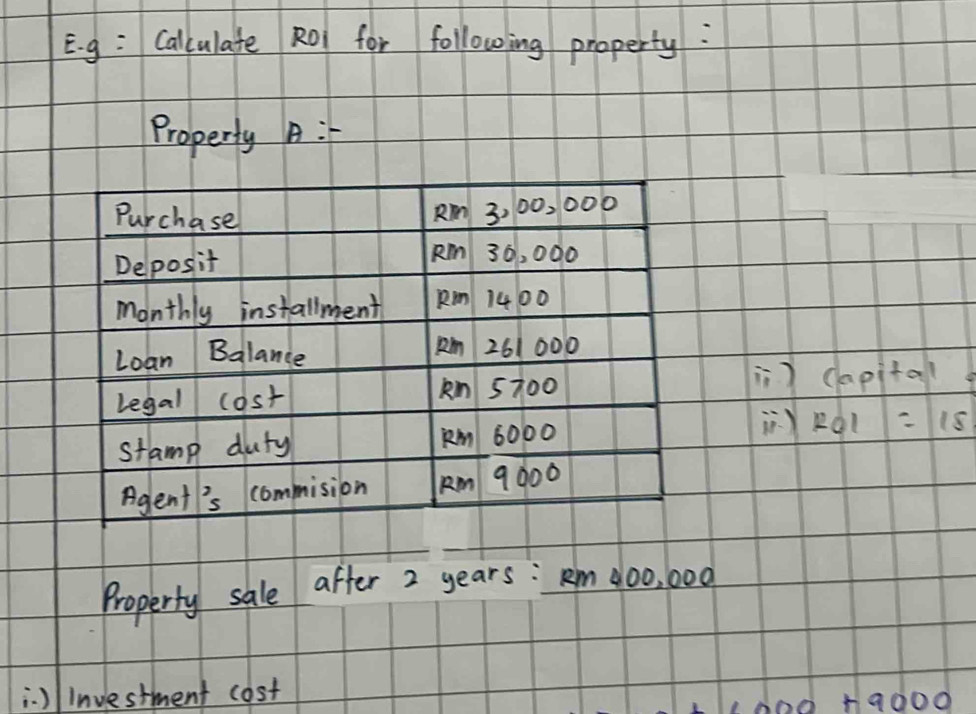 E.g : Calculate ROI for following property :
Property A :-
Purchase RM 3,00,000
Deposit RM 30,000
Monthly installment RM 1400
Loan Balance RM 261 000
Legal cost RM 5700
Stamp duty RM 6000
Agent's commision RM 9000
ii) Capital
ii.) ROI = 15
Property sale after 2 years : RM 400,000
i.) Investment cost
+ 9000